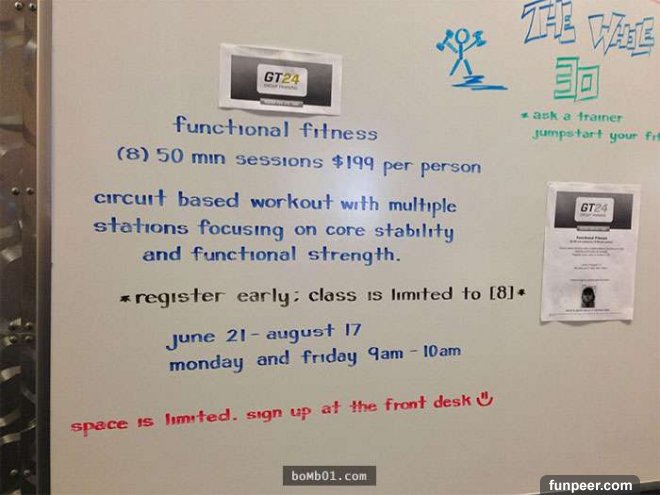 THE WHOLE
30
* ask a trainer
jumpstart your fit
GT24
GROUP TRAINING
functional fitness
(8) 50 min sessions $199 per person
circuit based workout with multiple
stations focusing on core stability
and functional strength.
*register early; class is limited to [8]*
june 21 - august 17
monday and friday 9am - 10am
space is limited. sign up at the front desk
GT24
Functional Fitness
boMb01.com
funpeer.com